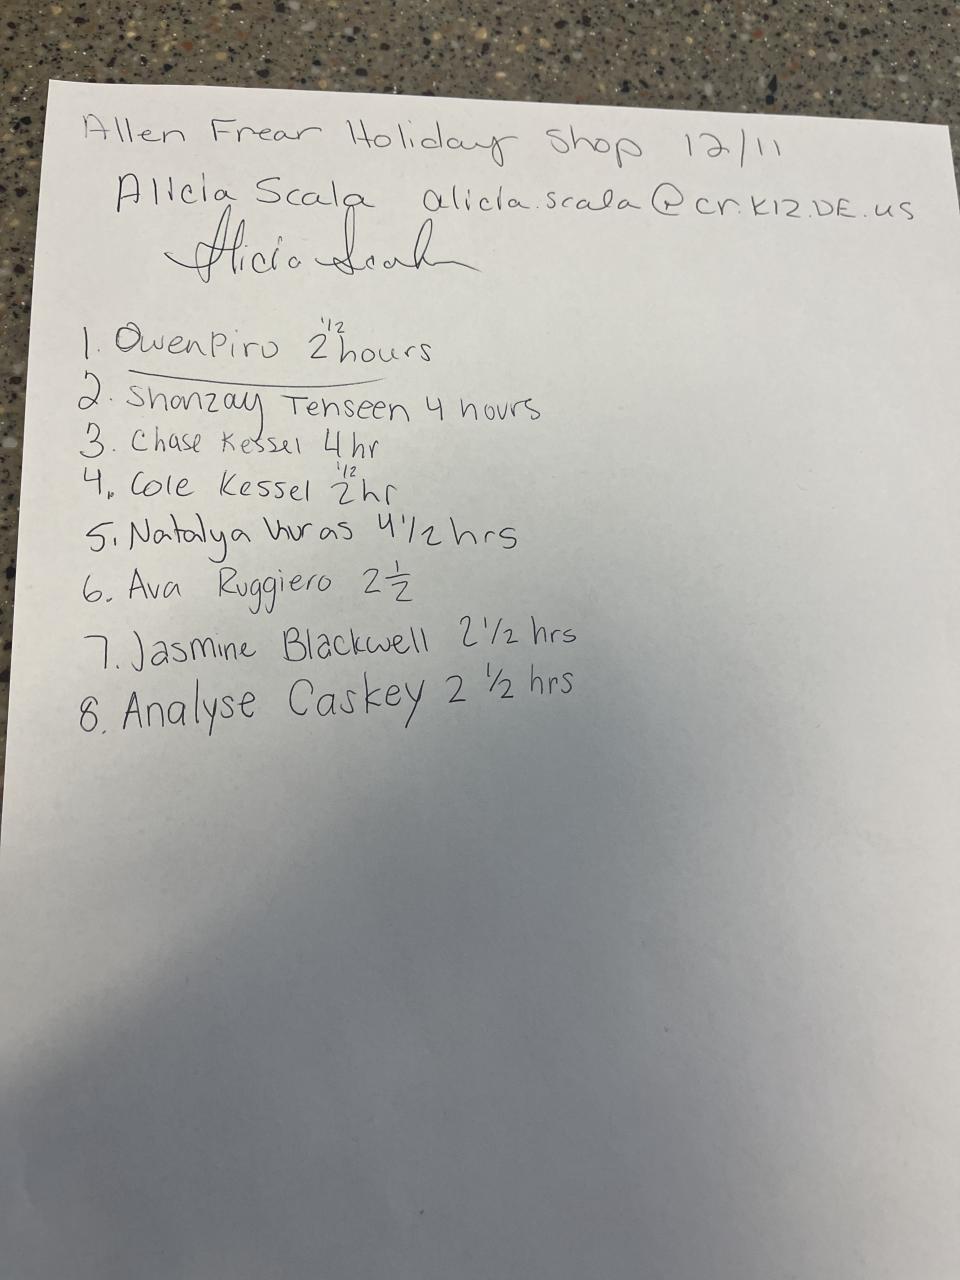 Allen Frear Holiday Shop 12/11
Alicia Scala alicia.scala@cr.K12.DE.us
Alicia Scala
1. Owen Piro 2 1/2 hours
2. Shanzay Tehseen 4 hours
3. Chase Kessel 4 hr
4. Cole Kessel 2 1/2 hr
5. Natalya 4 1/2 hrs
6. Ava Ruggiero 2 1/2
7. Jasmine Blackwell 2 1/2 hrs
8. Analyse Caskey 2 1/2 hrs